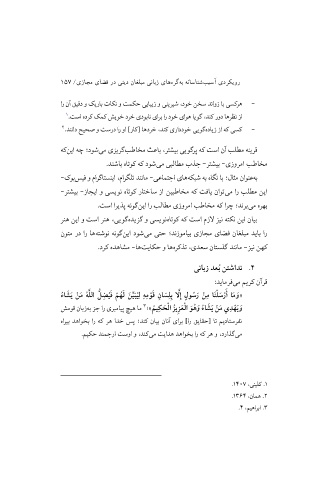 رویکردی آسیب‌شناسانه به‌گره‌های زبانی مبلغان دینی در فضای مجازی/ ۱۵۷
- هرکسی با زوائد سخن خود، شیرینی و زیبایی حکمت و نکات باریک و دقیق آن را
از نظرها دور کند، گویا هوای خود را برای نابودی خرد خویش کمک کرده است.۱
- کسی که از زیاده‌گویی خودداری کند، خردها [کار] او را درست و صحیح دانند.۲
قرینه مطلب آن است که پرگویی بیشتر، باعث مخاطب‌گریزی می‌شود؛ چه این‌که
مخاطب امروزی- بیشتر- جذب مطالبی می‌شود که کوتاه باشند.
به‌عنوان مثال؛ با نگاه به شبکه‌های اجتماعی- مانند تلگرام، اینستاگرام و فیس‌بوک-
این مطلب را می‌توان یافت که مخاطبین از ساختار کوتاه نویسی و ایجاز- بیشتر-
بهره می‌برند؛ چرا که مخاطب امروزی مطالب را این‌گونه پذیرا است.
بیان این نکته نیز لازم است که کوتاه‌نویسی و گزیده‌گویی، هنر است و این هنر
را باید مبلغان فضای مجازی بیاموزند؛ حتی می‌شود این‌گونه نوشته‌ها را در متون
کهن نیز- مانند گلستان سعدی، تذکره‌ها و حکایت‌ها- مشاهده کرد.
۴. نداشتن بُعد زبانی
قرآن کریم می‌فرماید:
«وَمَا أَرْسَلْنَا مِنْ رَسُولٍ إِلَّا بِلِسَانِ قَوْمِهِ لِيُبَيِّنَ لَهُمْ فَيُضِلُّ اللَّهُ مَنْ يَشَاءُ
وَيَهْدِي مَنْ يَشَاءُ وَهُوَ الْعَزِيزُ الْحَكِيمُ»؛۳ ما هیچ پیامبری را جز به‌زبان قومش
نفرستادیم تا [حقایق را] برای آنان بیان کند؛ پس خدا هر که را بخواهد بیراه
می‌گذارد، و هر که را بخواهد هدایت می‌کند، و اوست ارجمند حکیم.
۱. کلینی، ۱۴۰۷.
۲. همان، ۱۳۶۴.
۳. ابراهیم، ۴.